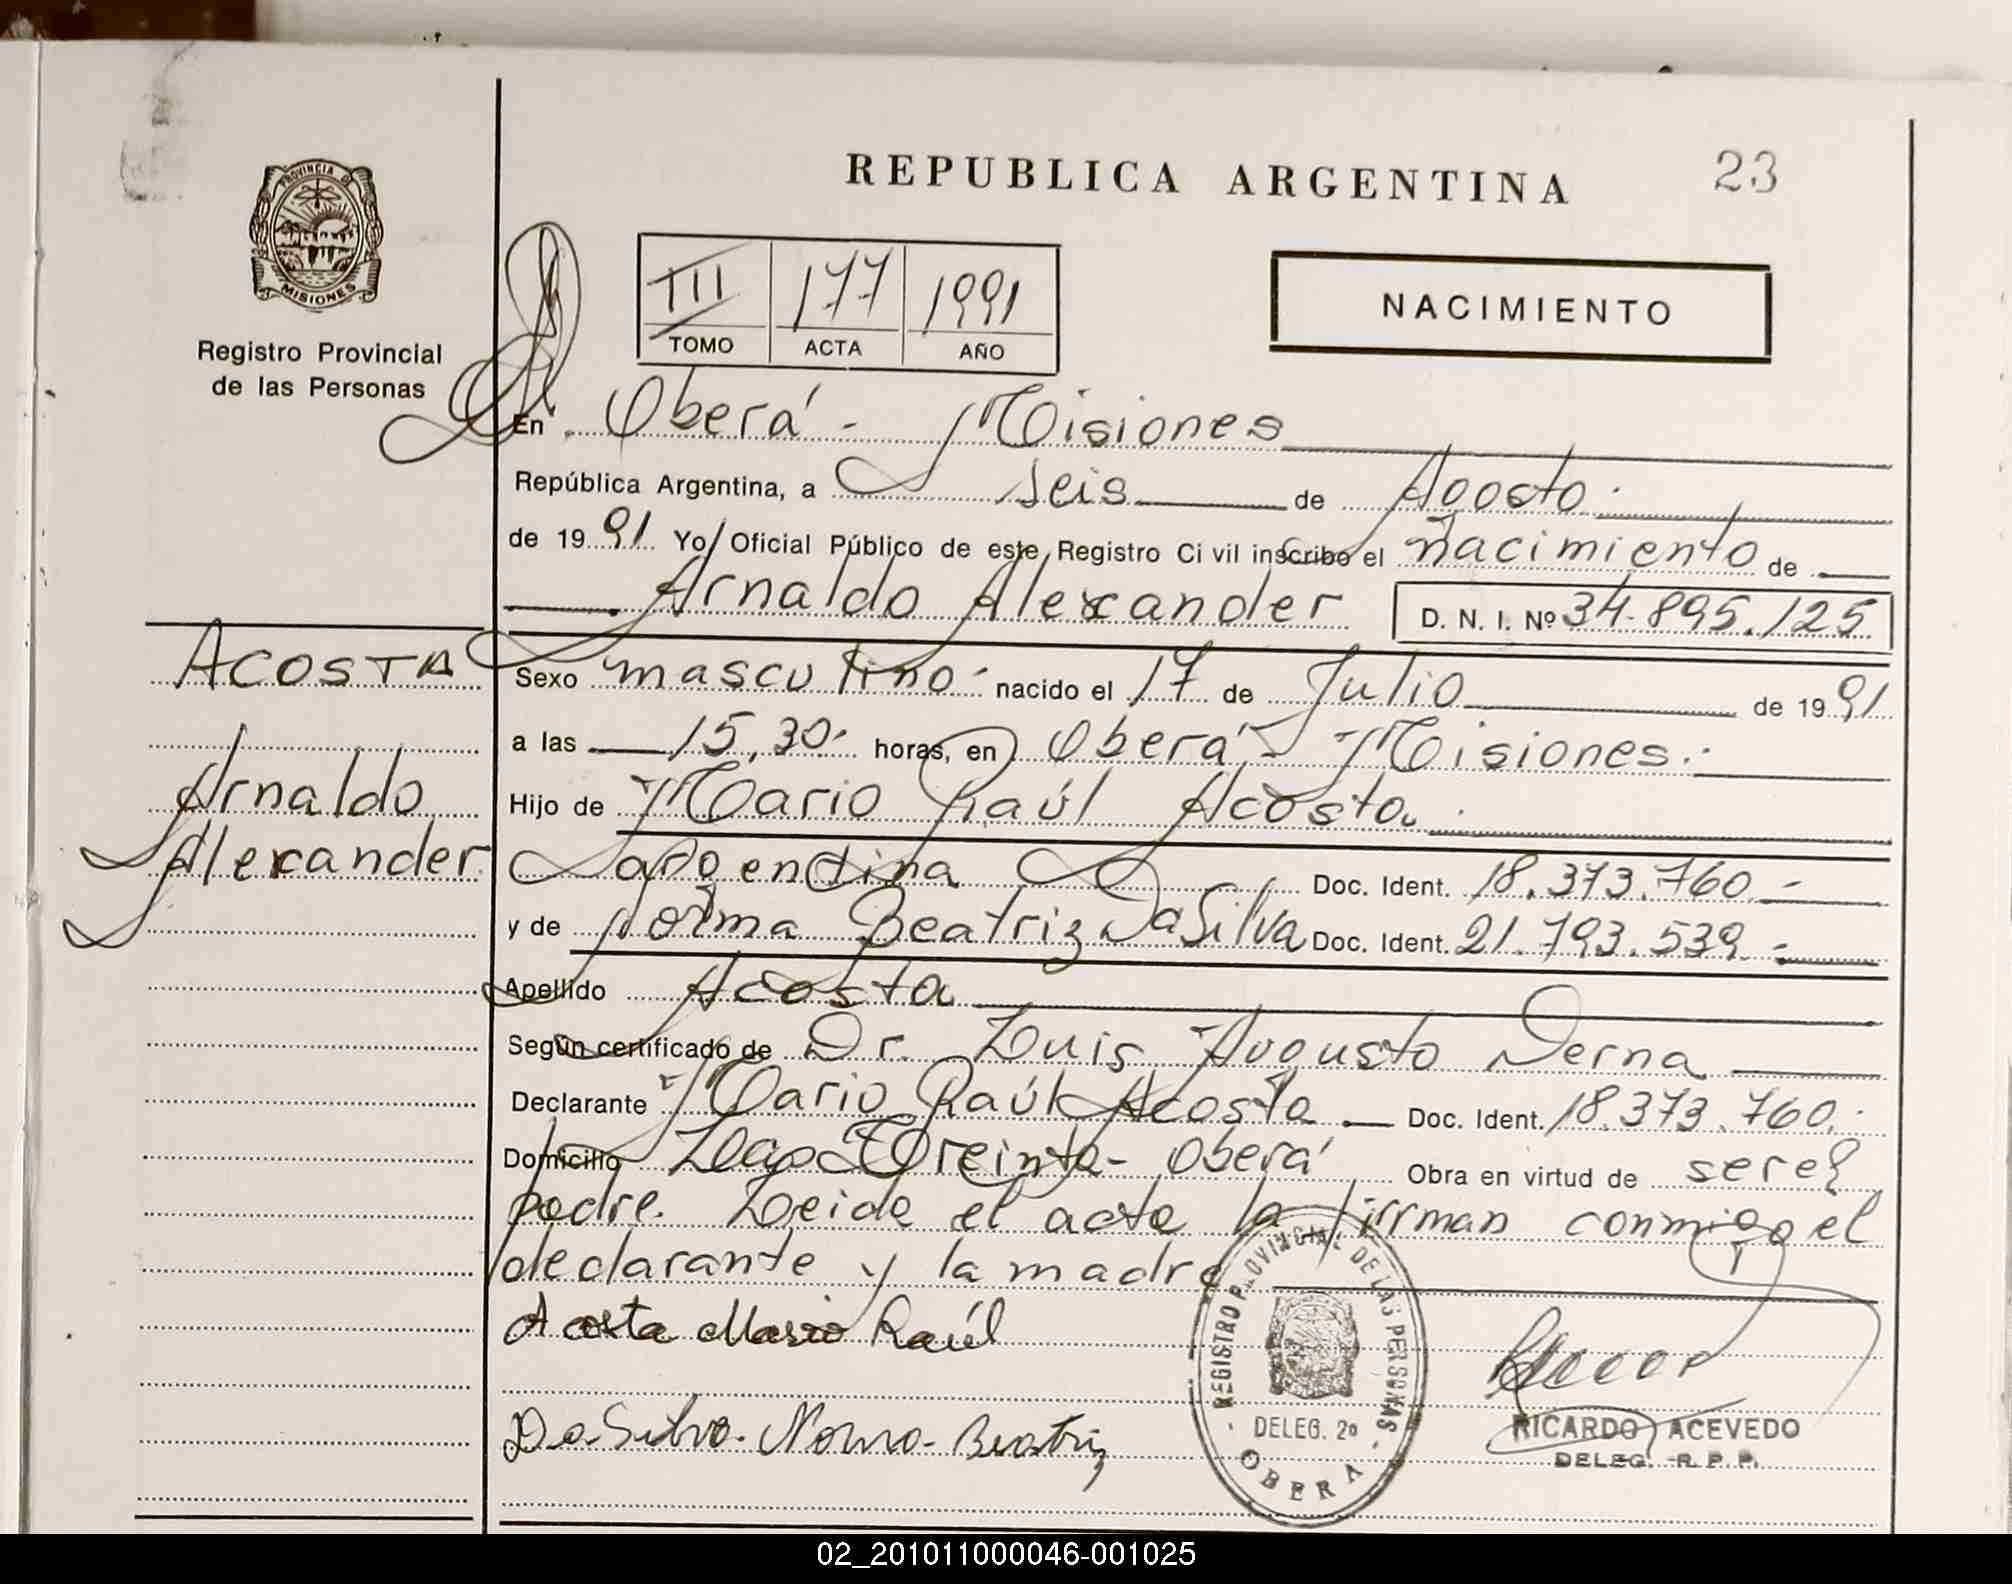 REPUBLICA ARGENTINA
23
PROVINCIA DE
MISIONES
Registro Provincial
de las Personas
III 177 1991
TOMO ACTA AÑO
NACIMIENTO
En Oberá - Misiones
República Argentina, a seis de Agosto
de 19 91 Yo Oficial Público de este Registro Civil inscribo el nacimiento de
Arnaldo Alexander D. N. I. Nº 34.895.125
ACOSTA
Arnaldo
Alexander
Sexo masculino nacido el 17 de Julio de 19 91
a las 15,30 horas, en Oberá - Misiones.
Hijo de Mario Raúl Acosta
argentina Doc. Ident. 18.373.760.-
y de Norma Beatriz Da Silva Doc. Ident. 21.793.539.-
Apellido Acosta
Según certificado de Dr. Luis Augusto Derna
Declarante Mario Raúl Acosta Doc. Ident. 18.373.760.
Domicilio Treinta - Oberá Obra en virtud de ser el
padre. Leida el acta la firman conmigo el
declarante y la madre
Acosta Mario Raúl
Da Silva Norma Beatriz
REGISTRO PROVINCIAL DE LAS PERSONAS
DELEG. 2a
OBERA
RICARDO ACEVEDO
DELEG. R. P. P.
02_201011000046-001025